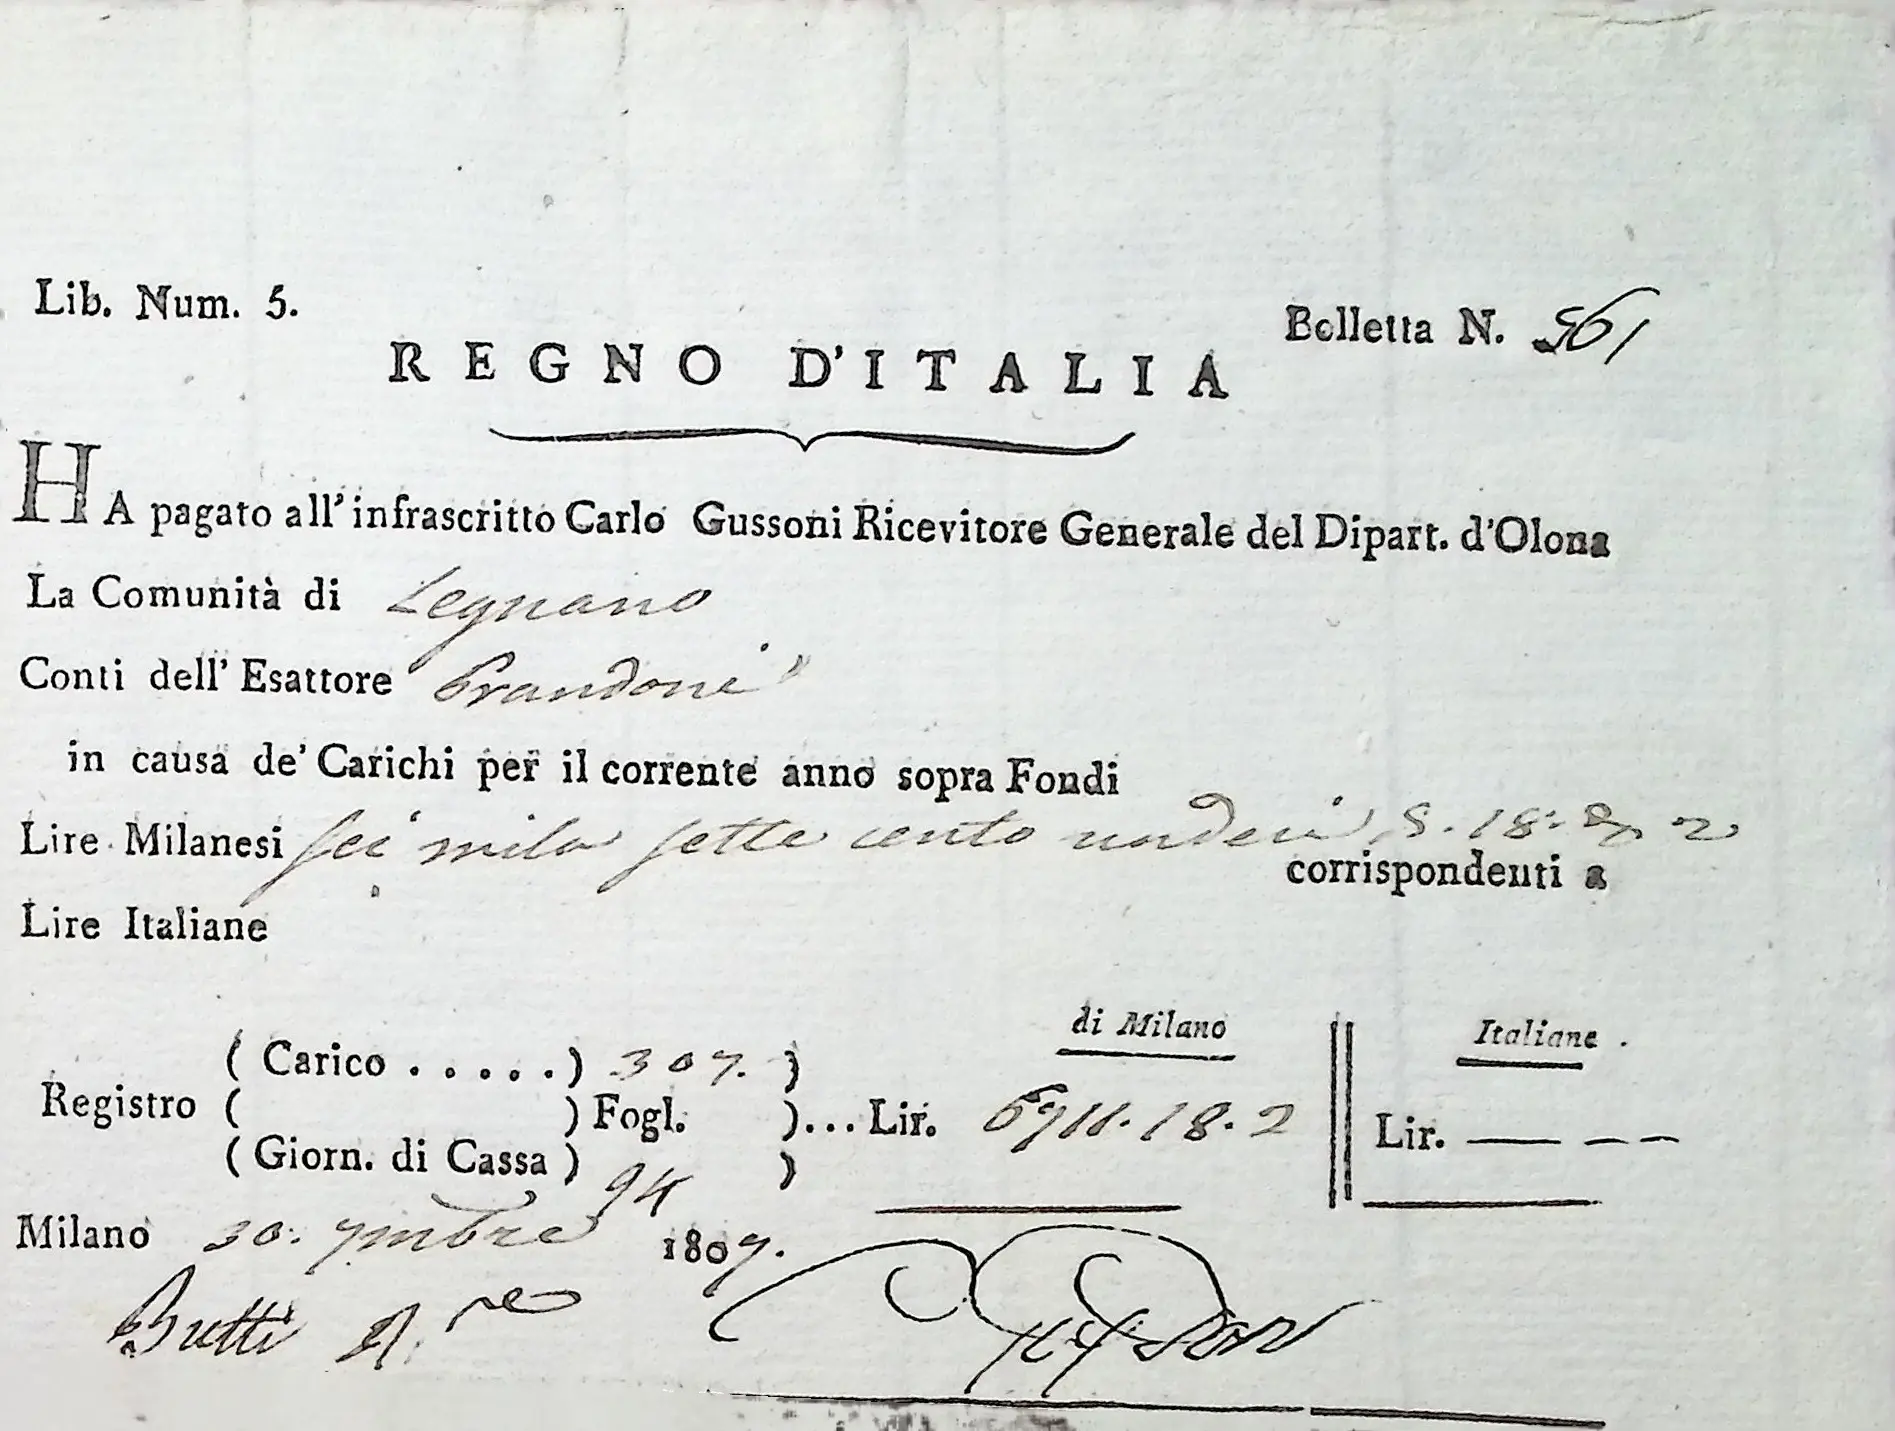 Lib. Num. 5.
Bolletta N. 561
REGNO D'ITALIA
HA pagato all' infrascritto Carlo Gussoni Ricevitore Generale del Dipart. d'Olona
La Comunità di Legnano
Conti dell' Esattore Prandoni
in causa de' Carichi per il corrente anno sopra Fondi
Lire Milanesi sei mila sette cento undeci S. 18: D 2
corrispondenti a
Lire Italiane
di Milano Italiane.
( Carico . . . . . ) 307. )
Registro ( ) Fogl. )... Lir. 6711.18.2 Lir. — – –
( Giorn. di Cassa ) 94 )
Milano 30. 7mbre 1807.
Butti